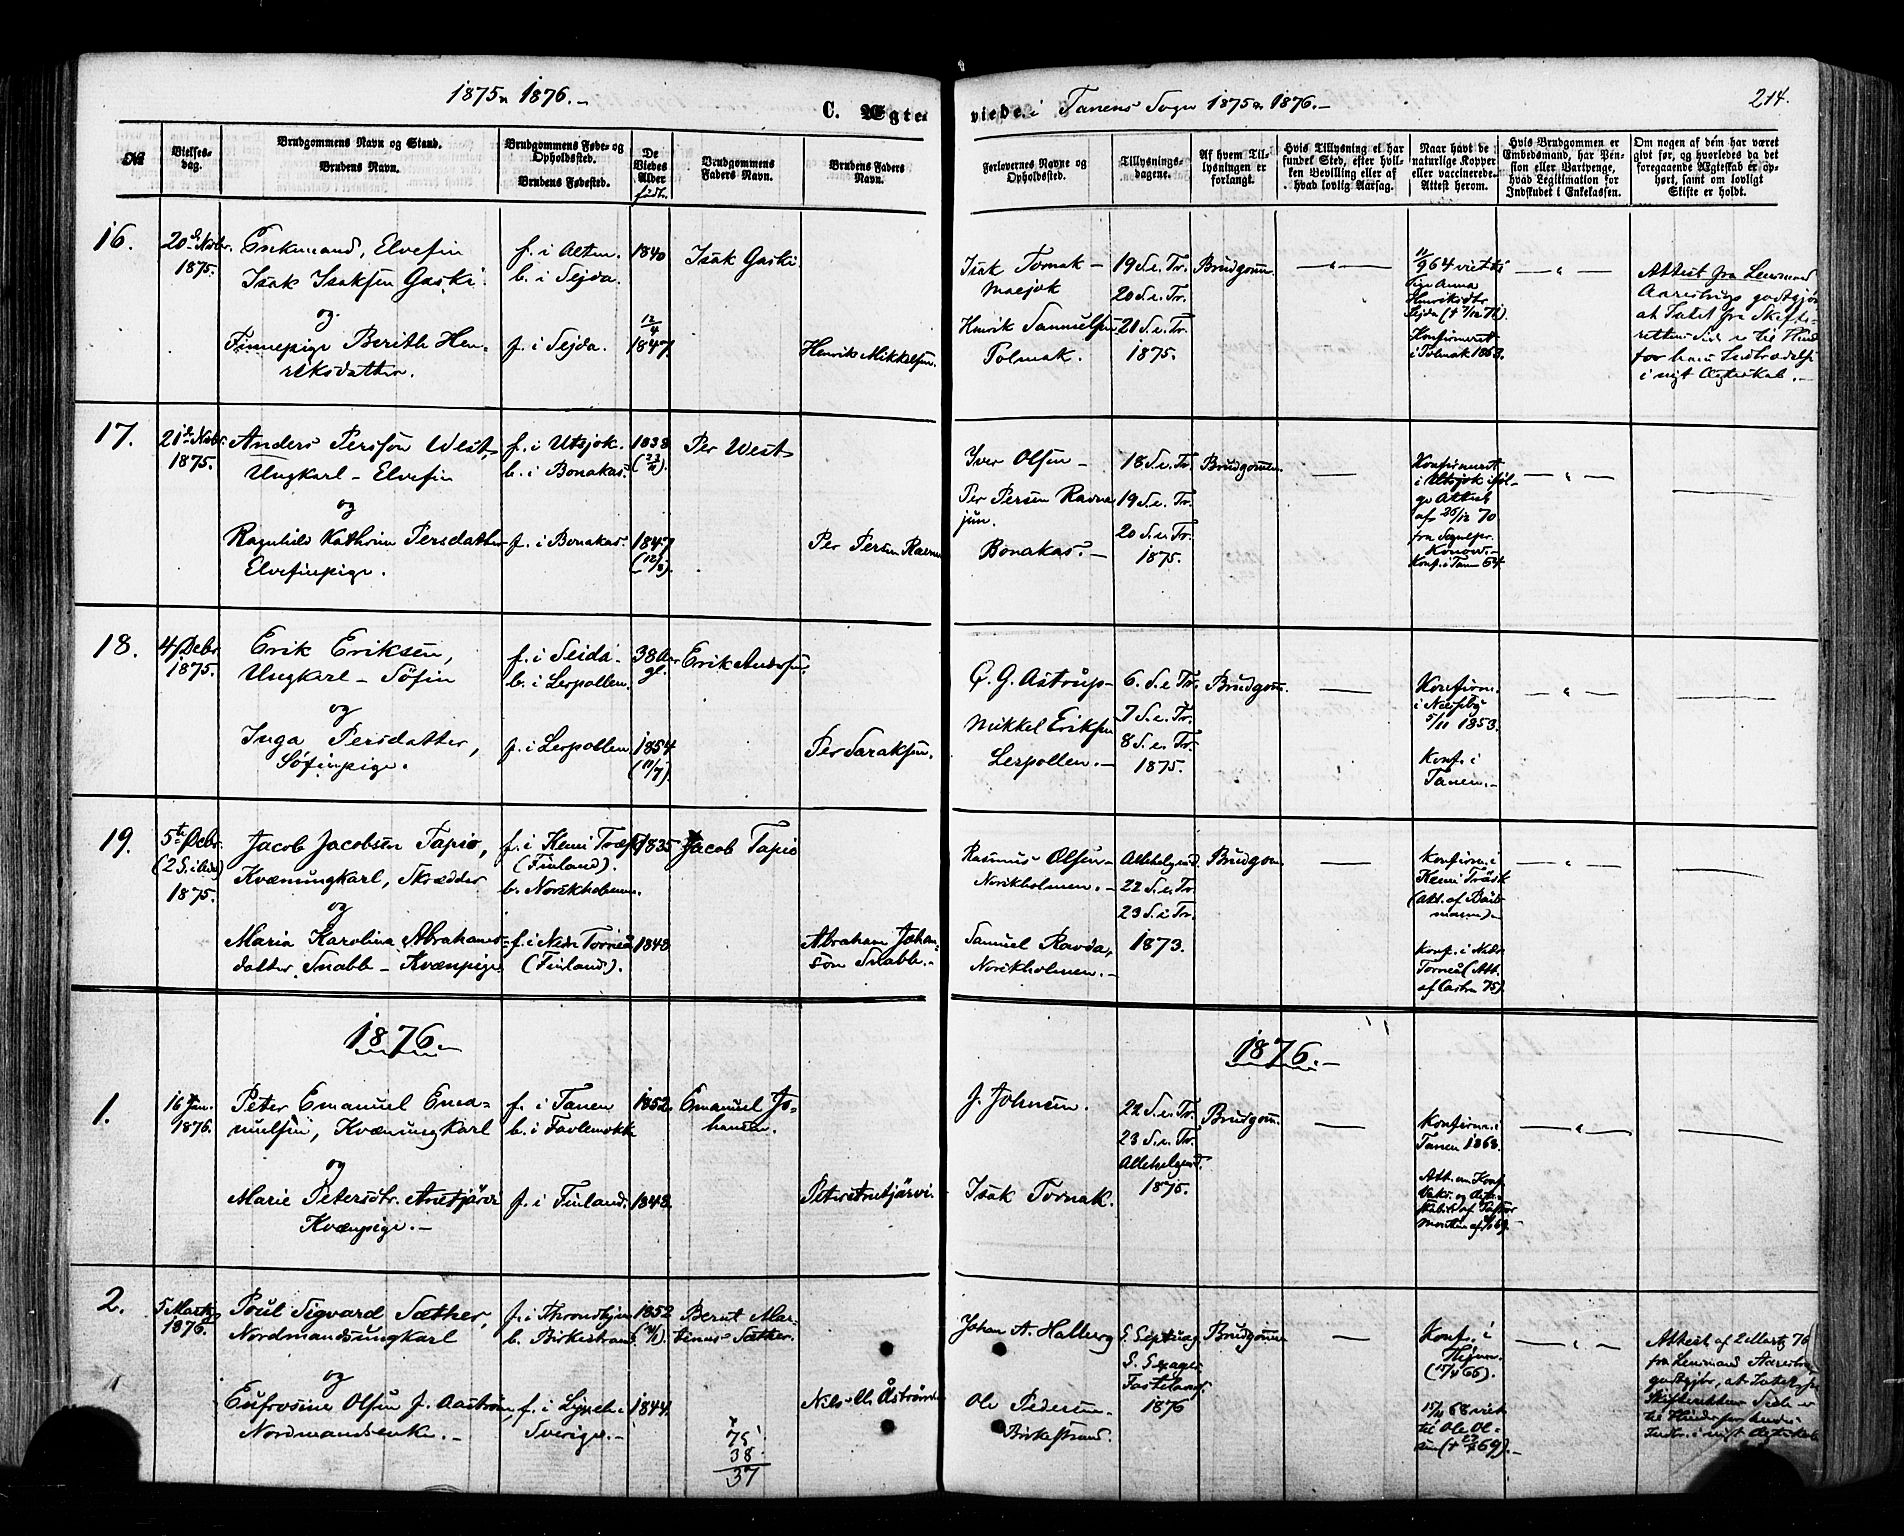 1875 & 1876. –
C. Ægte-
viede i Tanens Sogn 1875 & 1876. –
214.
No
Vielses-
dag.
Brudgommens Navn og Stand.
Brudens Navn.
Brudgommens Føde- og
Opholdssted.
Brudens Fødested.
De
Viedes
Alder
født.
Brudgommens
Faders Navn.
Brudens Faders
Navn.
Forlovernes Navne og
Opholdssted.
Tillysnings-
dagene.
Af hvem Til-
lysningen er
forlangt.
Hvis Tillysning ei har
fundet Sted, efter hvil-
ken Bevilling eller af
hvad lovlig Aarsag.
Naar havt de
naturlige Kopper
eller vaccinerede.
Attest herom.
Hvis Brudgommen er
Embedsmand, har Pen-
sion eller Vartpenge,
hvad Legitimation for
Indskudet i Enkekassen.
Om nogen af dem har været
givt før, og hvorledes da det
foregaaende Ægteskab er op-
hørt, samt om lovligt
Skifte er holdt.
16.
20de Novbr.
1875.
Enkemand, Elvefin
Isak Isaksen Gaski
og
Finnepige Berith Hen-
riksdatter.
f. i Alten.
b. i Sejda.
f. i Sejda.
1840
12/4
1847
Isak Gaski
Henrik Mikkelsen.
Isak Tornak –
Masjok
Henrik Samuelsen
Polmak.
19 S. e. Tr.
20 S. e. Tr.
21 S. e. Tr.
1875.
Brudgom.
64 viet til
Pige Anna
Henriksdtr
Sejda
Konfirmeret
i Polmak 1863.
Attest fra Lensmand
Aarestrup godtgjør
at Intet fra Skifte-
rettens Side er til Hind.
for hans Indtrædelse
i nyt Ægteskab. –
17.
21de Novbr.
1875.
Anders Persson West,
Ungkarl – Elvefin
og
Ragnhild Kathrine Persdatter
Elvefinpige.
f. i Utsjok.
b. i Bonakas.
f. i Bonakas.
1838
1847
Per West
Per Persen Ravna
Iver Olsen –
Per Persen Ravna
jun.
Bonakas. –
18 S. e. Tr.
19 S. e. Tr.
20 S. e. Tr.
1875.
Brudgommen
Konfirmeret
i Utsjok iføl-
ge Attest
af 26/12 70
fra Sognepr.
Konow. –
Konf. i Tanen 64
18.
4/Debr.
1875.
Erik Eriksen,
Ungkarl – Söfin
og
Inga Persdatter,
Söfinpige.
f. i Seida.
b. i Lerpollen.
f. i Lerpollen
38 Aar
gl.
1854
(11/7)
Erik Andersen.
Per Saraksen.
Q. G. Astrup –
Mikkel Eriksen
Lerpollen. –
6 S. e. Tr.
7 S. e. Tr.
8 S. e. Tr.
1875.
Brudgom.
Konfirm.
i Næsseby
5/11 1853.
Konf. i
Tanen. –
19.
5te Debr.
1875.
Jacob Jacobsen Tapio,
Kvænungkarl, Skrædder
og
Maria Karolina Abrahams-
datter Snabb – Kvænpige
f. i Kemi Træsk
(Finland).
b. Norskholmen.
f. i Nedre Torneå
(Finland).
1835
1848
Jacob Tapio
Abraham Johan-
son Snabb. –
Rasmus Olsen –
Norskholmen. –
Samuel Ravda,
Norskholmen. –
Allehelgend.
22 S. e. Tr.
23 S. e. Tr.
1873.
Brudgom.
Konfirm. i
Kemi Träsk
Konf. i Nedr.
Torneå (Att.
af Castrn 75).
1876. –
1876. –
1.
16 Jan.
1876.
Peter Emanuel Ema-
nuelsen, Kvænungkarl
og
Marie Petersdtr. Anetjärvi
Kvænpige. –
f. i Tanen
b. i
f. i Finland.
1852.
1848.
Emanuel Jo-
hansen.
Peter Anetjärvi
J. Johnsen.
Isak Tornak.
22 S. e. Tr.
23 S. e. Tr.
Allehelgend.
1875.
Brudgom.
Konfirm. i
Tanen 1868.
Att. om Konf.
2.
5 Marts
1876.
Poul Sigvard Sæther,
Nordmandsungkarl
og
Eufrosine Olsen f. Aaström,
Nordmandsenke. –
f. i Throndhjem
b. Birkestrand
f. i
Sverige. –
1852
1844.
Bernt Mar-
tinus Sæther.
Nils Ol. Åström
75
38
37
Johan A. Halberg
Ole Pedersen
Birkestrand.
S. Septuag.
S. Sexages.
Fastelavns.
1876
Brudgommen
Konf. i
68 viet
til Ole Ol-
sen
Attest af 2 Marts 76
fra Lensmand Aarestrup
godtgjør, at Intet fra
Skifterettens Side er
til Hinder for hendes
Indtr. i nyt Ægteskab